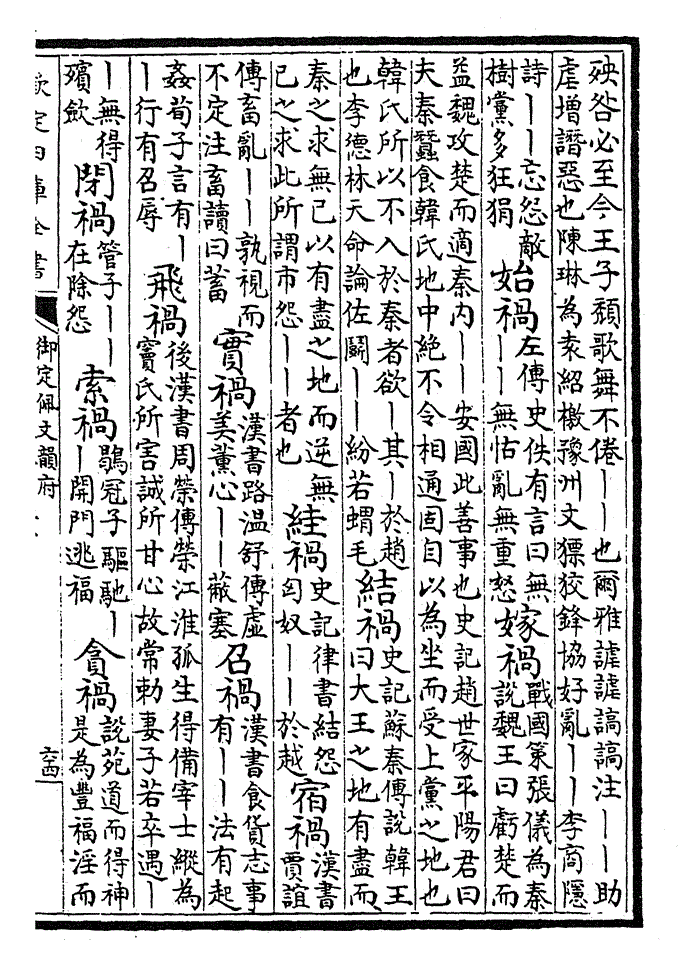 殃咎必至今王子頽歌舞不倦丨丨也爾雅謔謔謞謞注丨丨助
虐增譖惡也陳琳為袁紹檄豫州文獧狡鋒協好亂丨丨李商隱
詩丨丨忘怨敵
樹黨多狂狷
始禍
左傳史佚有言曰無
丨丨無怙亂無重怒
嫁禍
戰國策張儀為秦
說魏王曰虧楚而
益魏攻楚而適秦内丨丨安國此善事也史記趙世家平陽君曰
夫秦蠶食韓氏地中絶不令相通固自以為坐而受上黨之地也
韓氏所以不入於秦者欲丨其丨於趙
也李德林天命論佐鬭丨丨紛若蝟毛
結禍
史記蘇秦傳說韓王
曰大王之地有盡而
秦之求無已以有盡之地而逆無
已之求此所謂市怨丨丨者也
絓禍
史記律書結怨
匈奴丨丨於越
宿禍
漢書
賈誼
傳畜亂丨丨孰視而
不定注畜讀曰蓄
實禍
漢書路温舒傳虚
美薰心丨丨蔽塞
召禍
漢書食貨志事
有丨丨法有起
姦荀子言有丨
丨行有召辱
飛禍
後漢書周榮傳榮江淮孤生得備宰士縱為
竇氏所害誠所甘心故常勅妻子若卒遇丨
丨無得
殯斂
閉禍
管子丨丨
在除怨
索禍
鶡冠子驅馳丨
丨開門逃福
貪禍
說苑道而得神
是為豐福淫而
欽定四庫全書
御定佩文韻府
六四